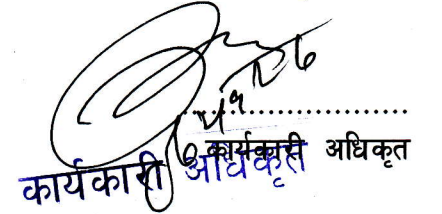 ........................
कार्यकारी अधिकृत
कार्यकारी अधिकृत